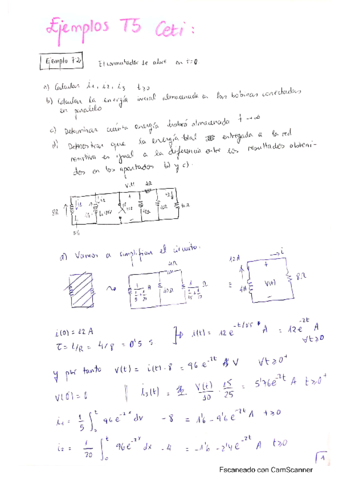 Ejemplos T5 Ceti:
Ejemplo 7.3 El conmutador se abre en t=0
a) Calcular i1, i2, i3 t≥0
b) Calcular la energía inicial almacenada en las bobinas conectadas
en paralelo
c) Determinar cuánta energía habrá almacenado t→∞
d) Demostrar que la energía total entregada a la red
resistiva es igual a la diferencia entre los resultados obteni-
dos en los apartados b) y c).
V(t) 4Ω
8Ω
a) Vamos a simplificar el circuito.
4Ω
12A
V(t) 8Ω
i(0) = 12 A
τ = L/R = 4/8 = 0'5 s
i(t) = 12 e A = 12 e^-2t A
∀t≥0
y por tanto V(t) = i(t)·8 = 96 e^-2t V ∀t≥0+
i3(t) = V(t)/10 · 15/25 = 5'76 e^-2t A t≥0+
i1 = 1/5 ∫ 96 e dx - 8 = 1'6 - 9'6 e^-2t A t≥0
i2 = 1/20 ∫ 96 e dx - 4 = -1'6 - 2'4 e^-2t A t≥0
1
Escaneado con CamScanner